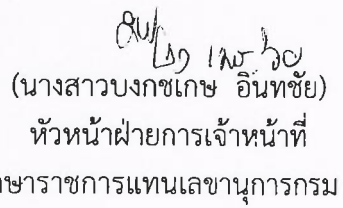 (นางสาวบงกชเกษ อินทชัย)
หัวหน้าฝ่ายการเจ้าหน้าที่
ษาราชการแทนเลขานุการกรม